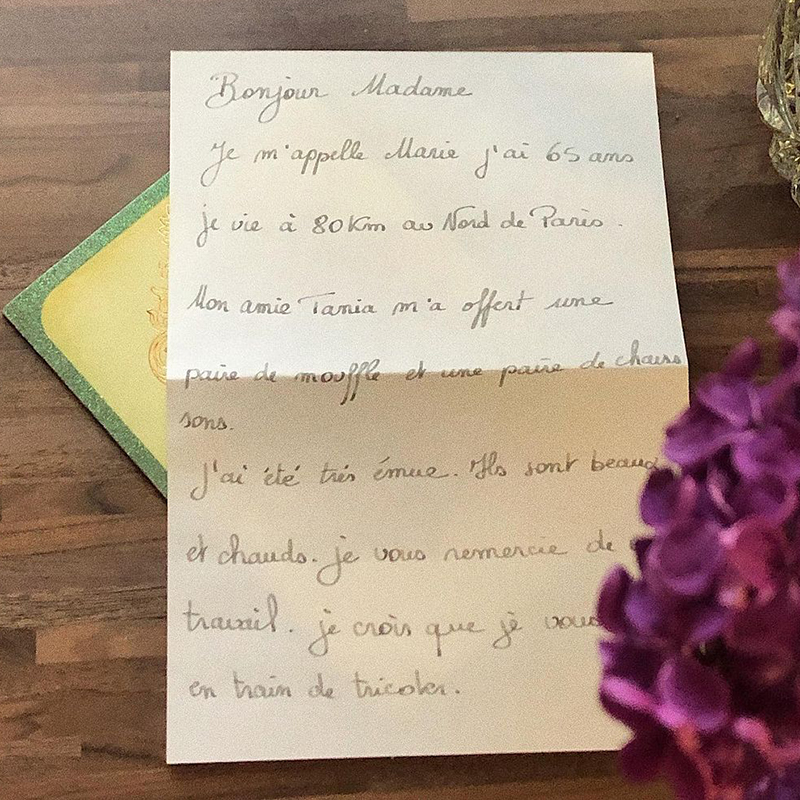 Bonjour Madame
Je m'appelle Marie j'ai 65 ans
je vie à 80 Km au Nord de Paris.
Mon amie Tania m'a offert une
paire de mouffle et une paire de chaus
sons.
J'ai été trés émue. Ils sont beaux
et chauds. je vous remercie de
travail. je crois que je vous
en train de tricoter.